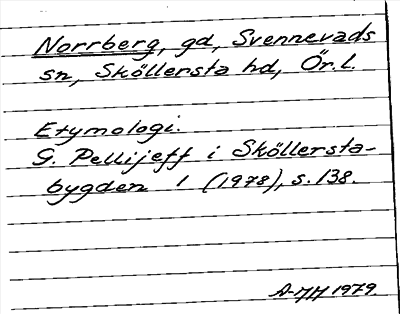 Norrberg, gd, Svennevads
sn, Sköllersta hd, Ör.l.
Etymologi.
G. Pellijeff i Sköllersta-
bygden 1 (1978), s. 138.
A-MH 1979.